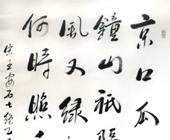 京口瓜
鐘山祇隔
風又緑
何時照
王安石七絶